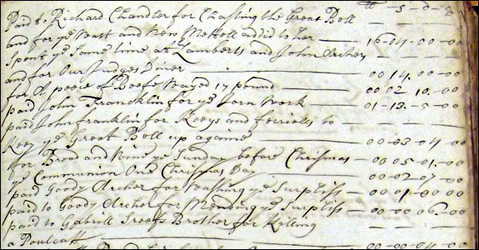 Paid to Richard Chandler for Chasting the Great Boll
and for ye Wast and New Mettell added to her — 16-04-00-00
Spent ye Same time at Lamberts and John Archers
and for Our Judges Diner — 00 14. 00-00
for A peece of Beefe Wayed 17 pound — 00 02 10-00
paid John Francklin for ye Iorn Work — 01-13-5-00
paid John franklin for Keeys and forrials to
Keey ye Great Boll up againe — 00-03-04-00
for Bred and Wine ye Sunday before Chrismas — 00-05-01-00
ye Communion And Chrismas Day — 00-02-07-00
paid Goody Archer for Washing ye Surpliss — 00-01-00-00
paid to Goody Archer for Mending ye Surpliss — 00-00-06-00
paid to Gabrill Brother for Killing
a Poulcatt